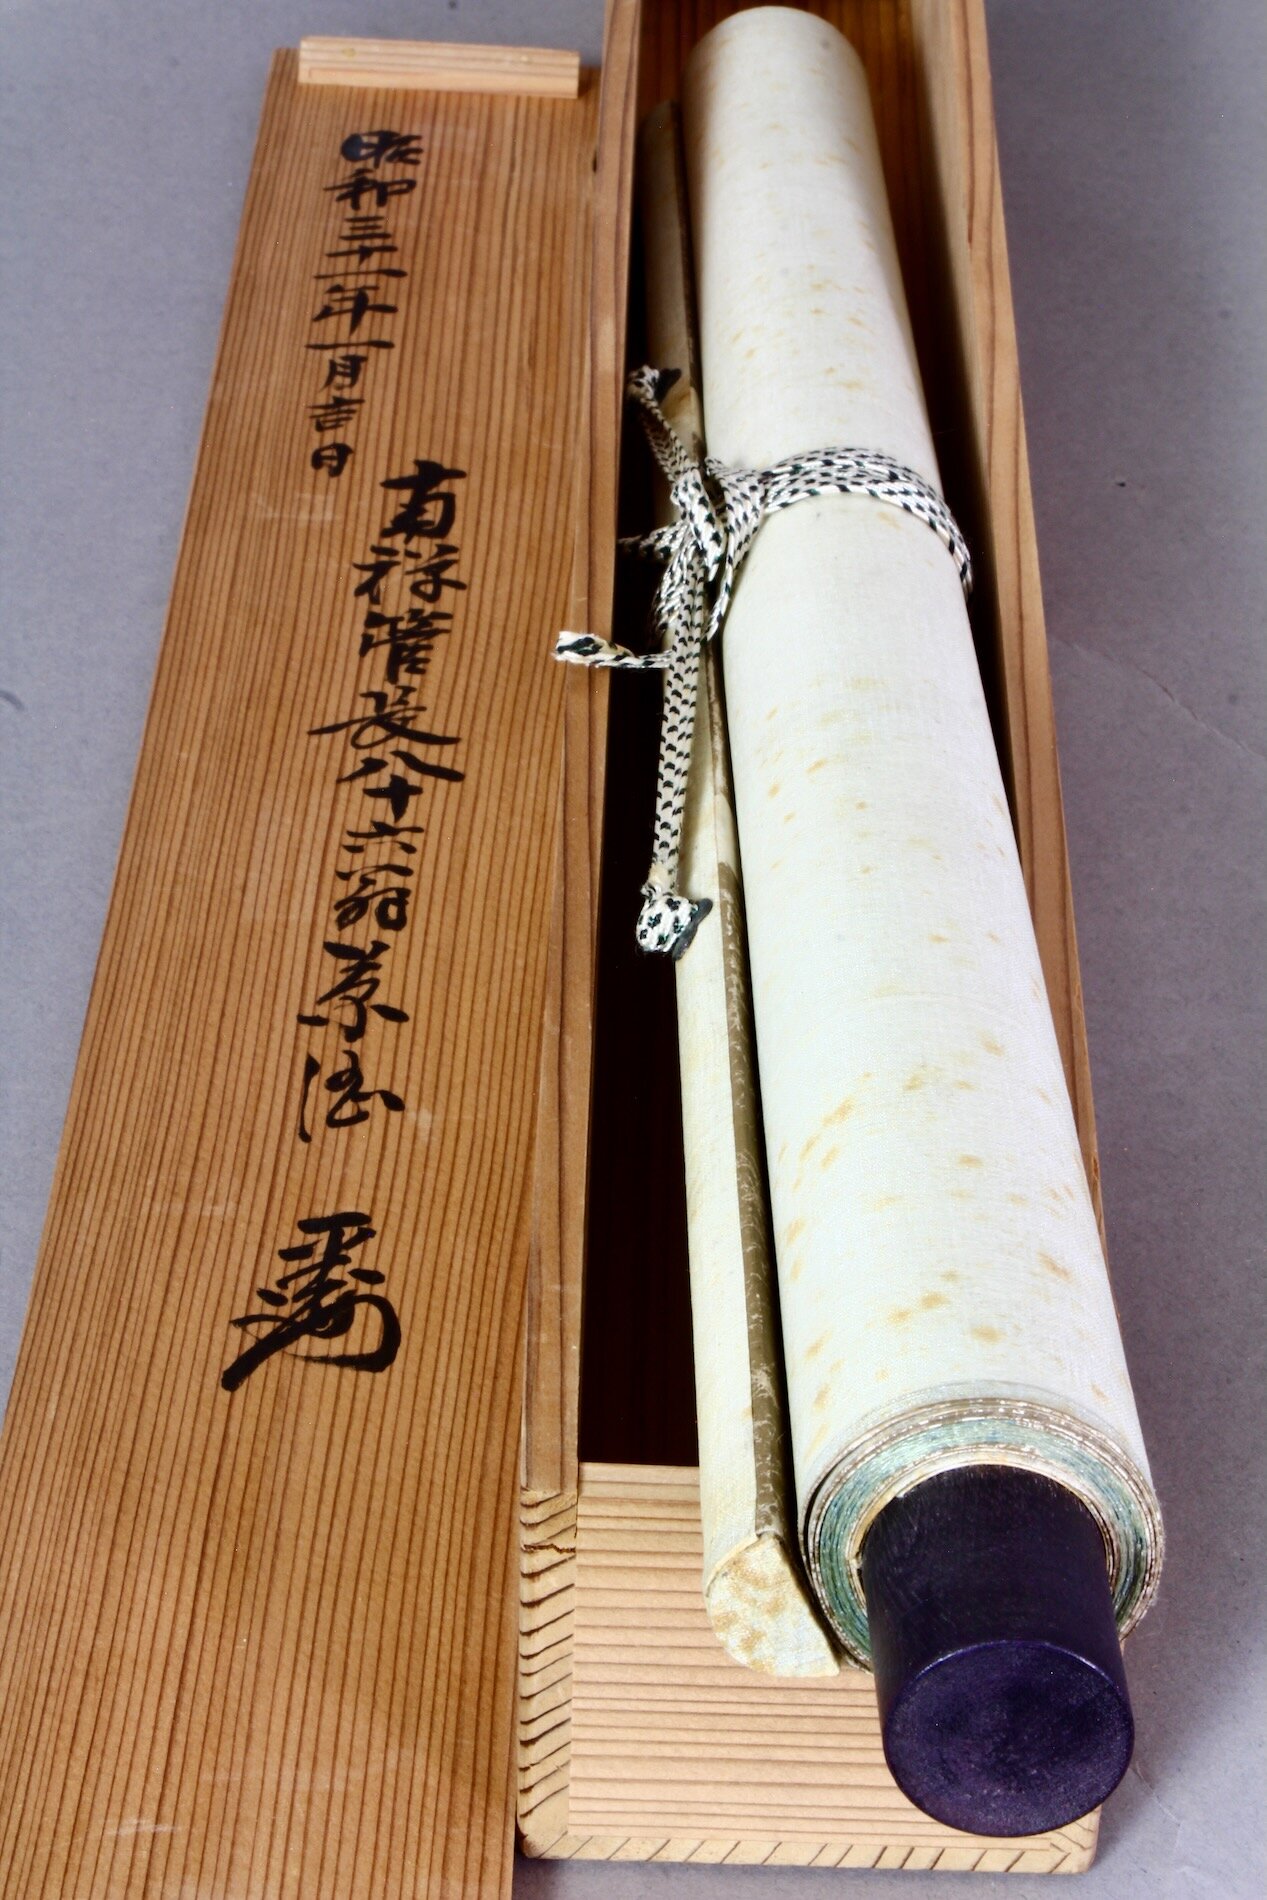 昭和三十一年一月吉日
南禅管長八十六翁